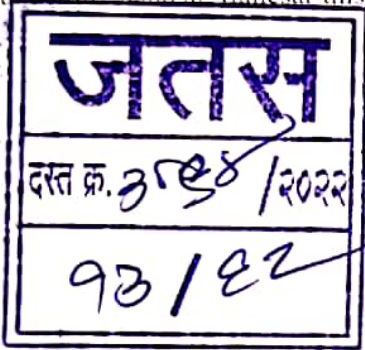 जतस
दस्त क्र. ३८९४ /२०२२
१३ / ६२